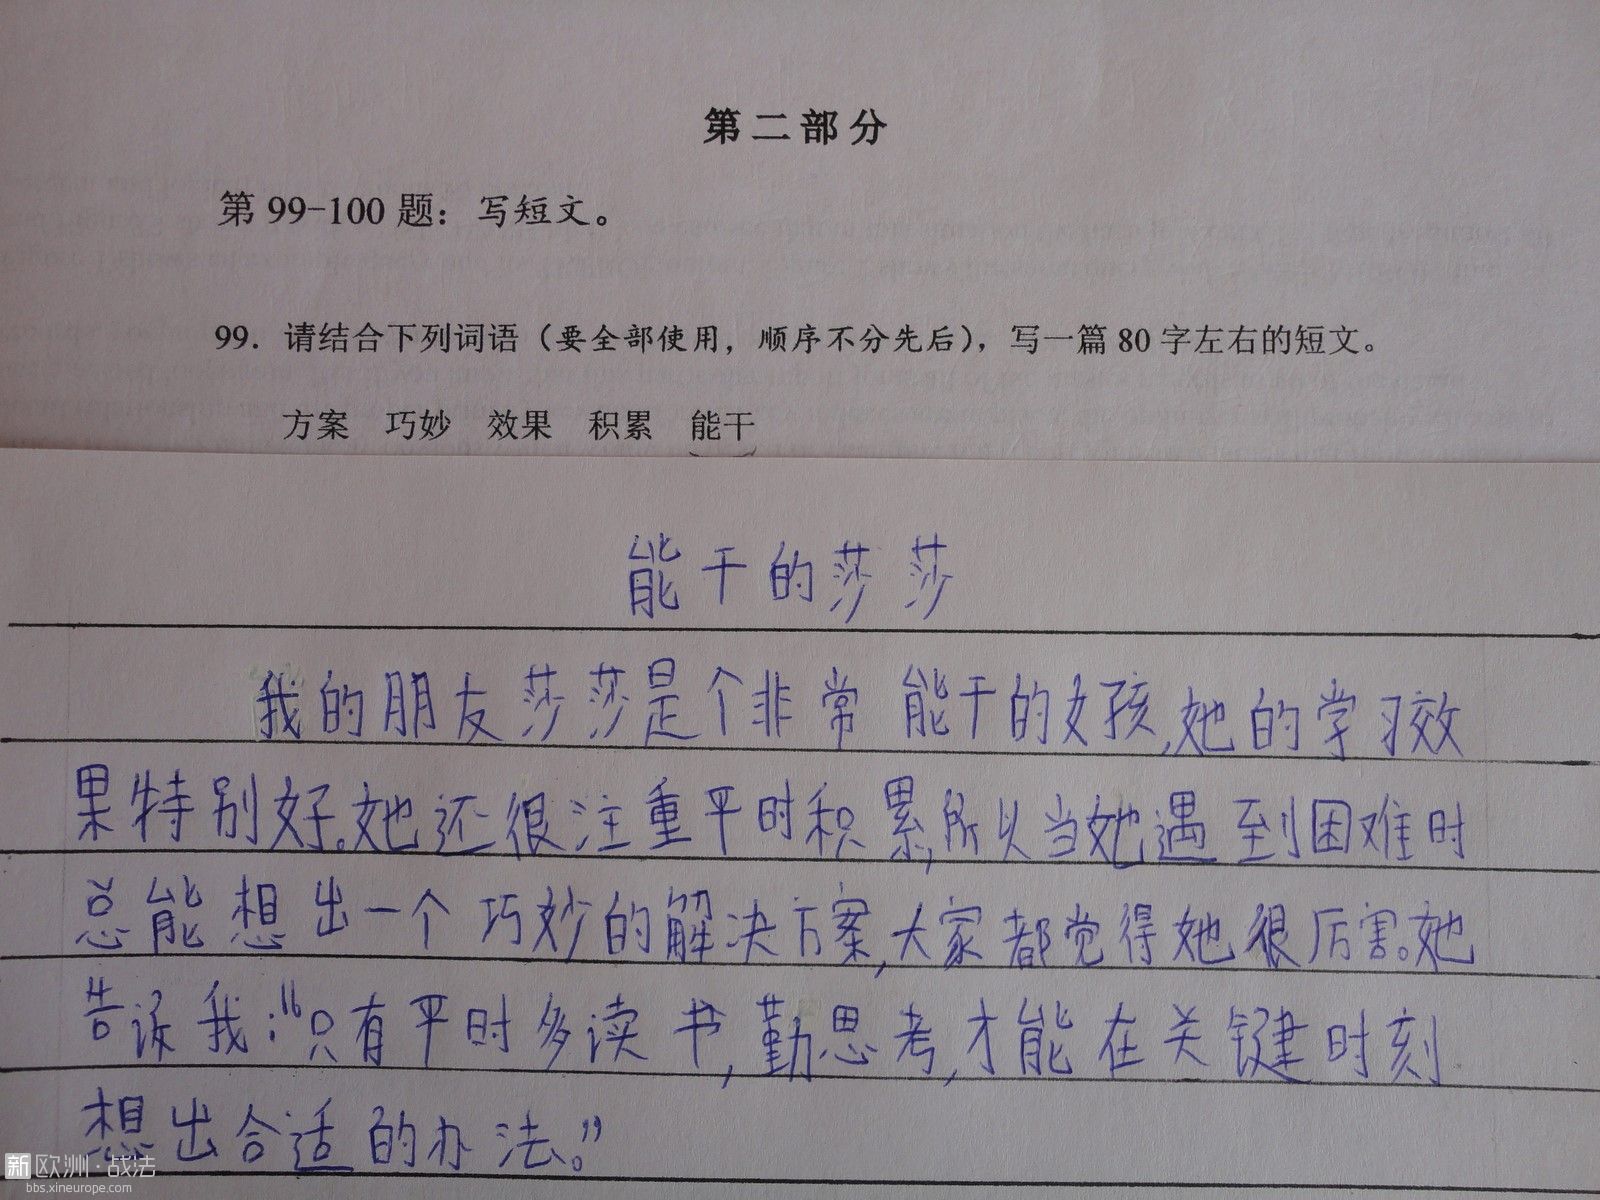 第二部分
第 99-100 题：写短文。
99. 请结合下列词语（要全部使用，顺序不分先后），写一篇 80 字左右的短文。
方案 巧妙 效果 积累 能干
能干的莎莎
我的朋友莎莎是个非常能干的女孩,她的学习效
果特别好。她还很注重平时积累,所以当她遇到困难时
总能想出一个巧妙的解决方案,大家都觉得她很厉害。她
告诉我:“只有平时多读书,勤思考,才能在关键时刻
想出合适的办法。”
新欧洲·战法
bbs.xineurope.com